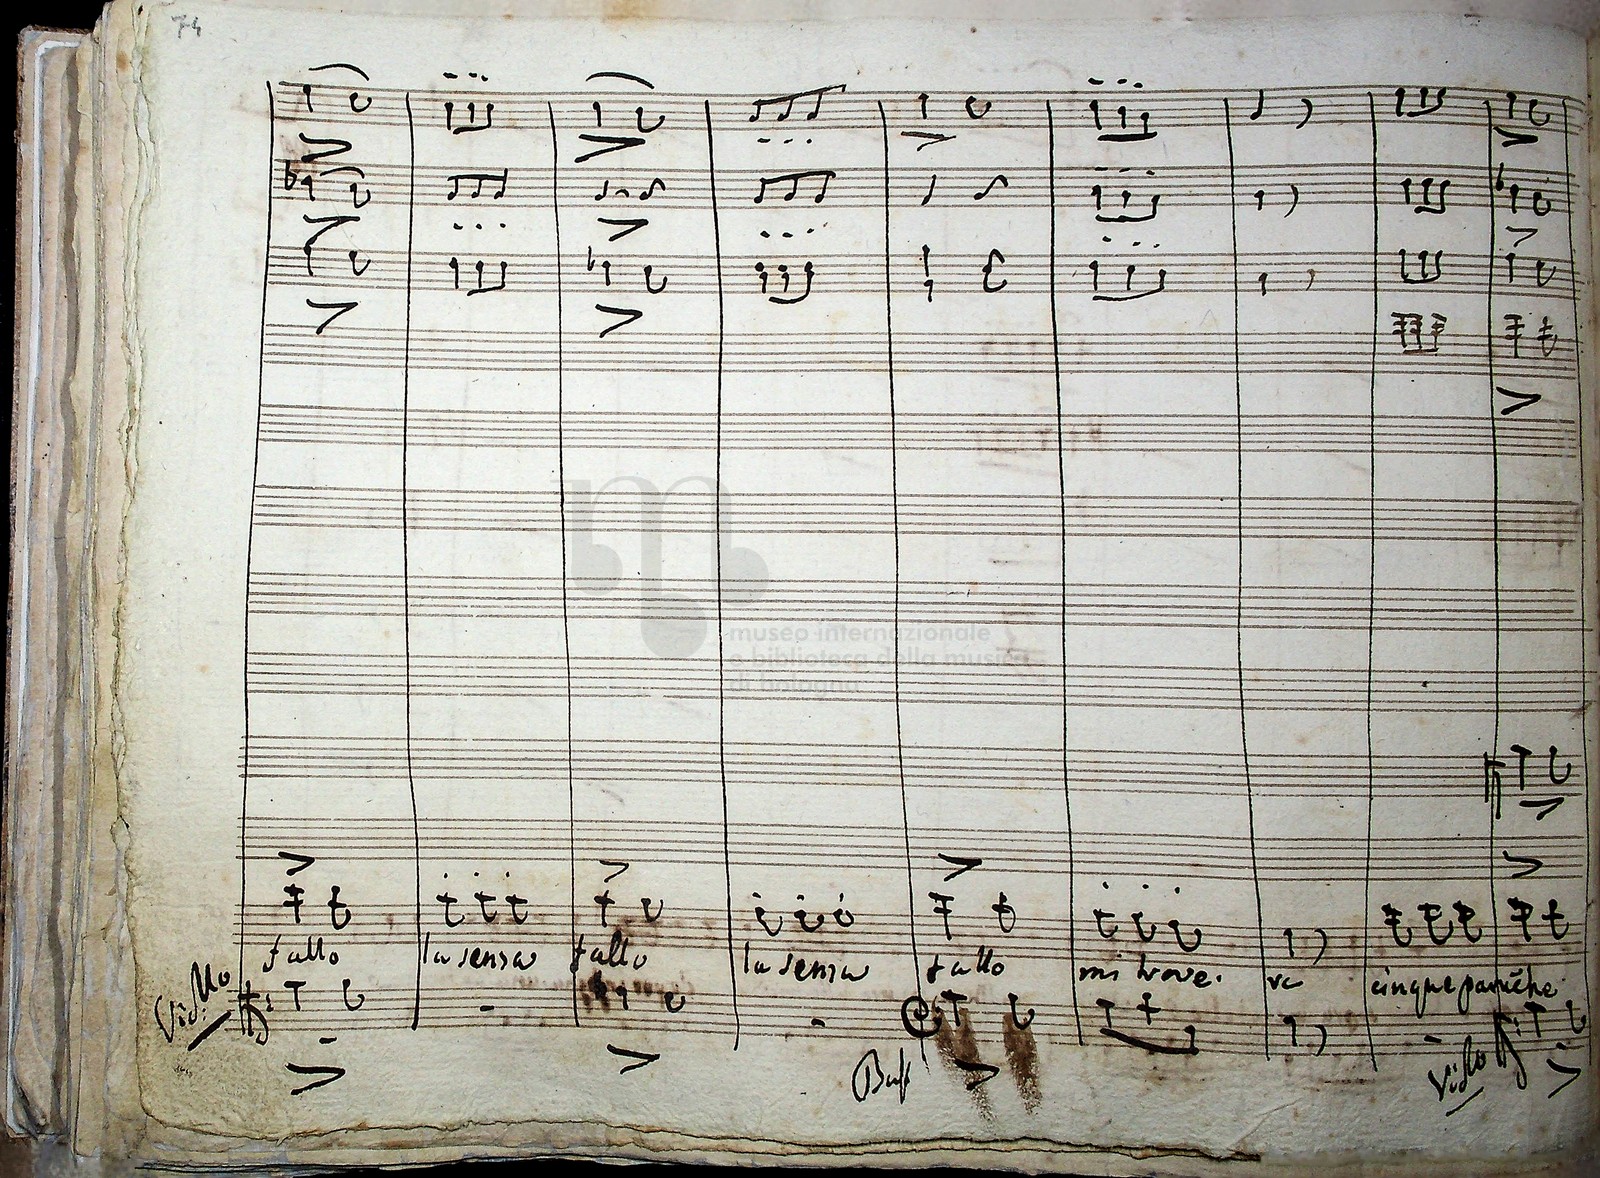 74
museo internazionale
e biblioteca della musica
di bologna
fallo la senza fallo la senza fallo mi trove. rà cinque parucche